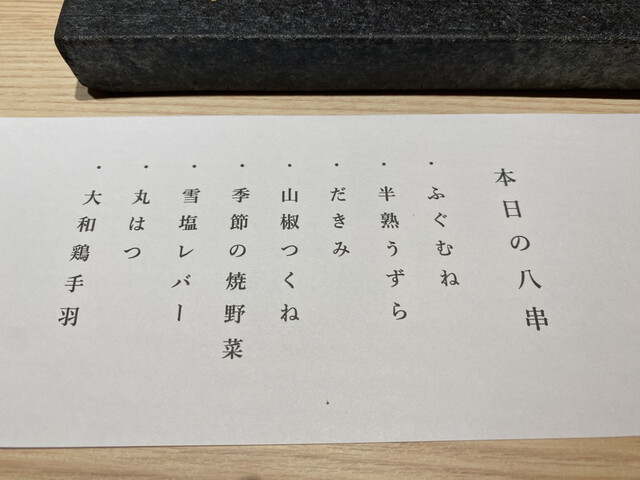 本日の八串
・ふぐむね
・半熟うずら
・だきみ
・山椒つくね
・季節の焼野菜
・雪塩レバー
・丸はつ
・大和鶏手羽